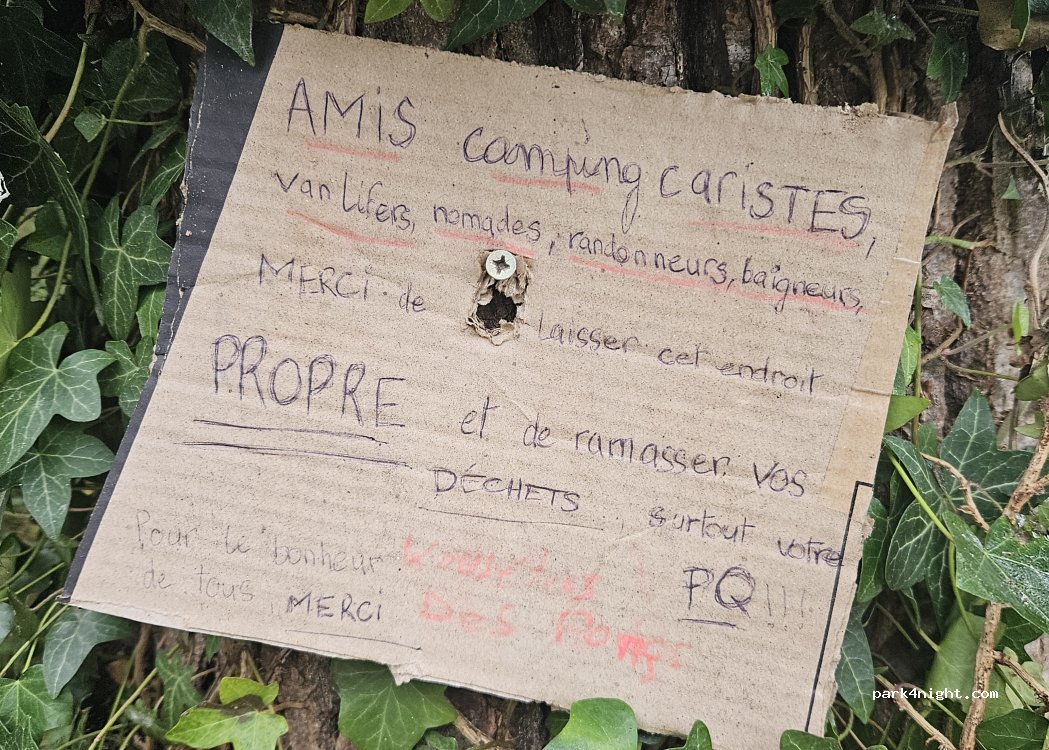 AMiS camping cariSTES,
van lifers, nomades, randonneurs, baigneurs,
MERCi de laisser cet endroit
PROPRE et de ramasser vos
DÉCHETS surtout votre
Pour le bonheur PQ!!!
de tous MERCi
Des
park4night.com